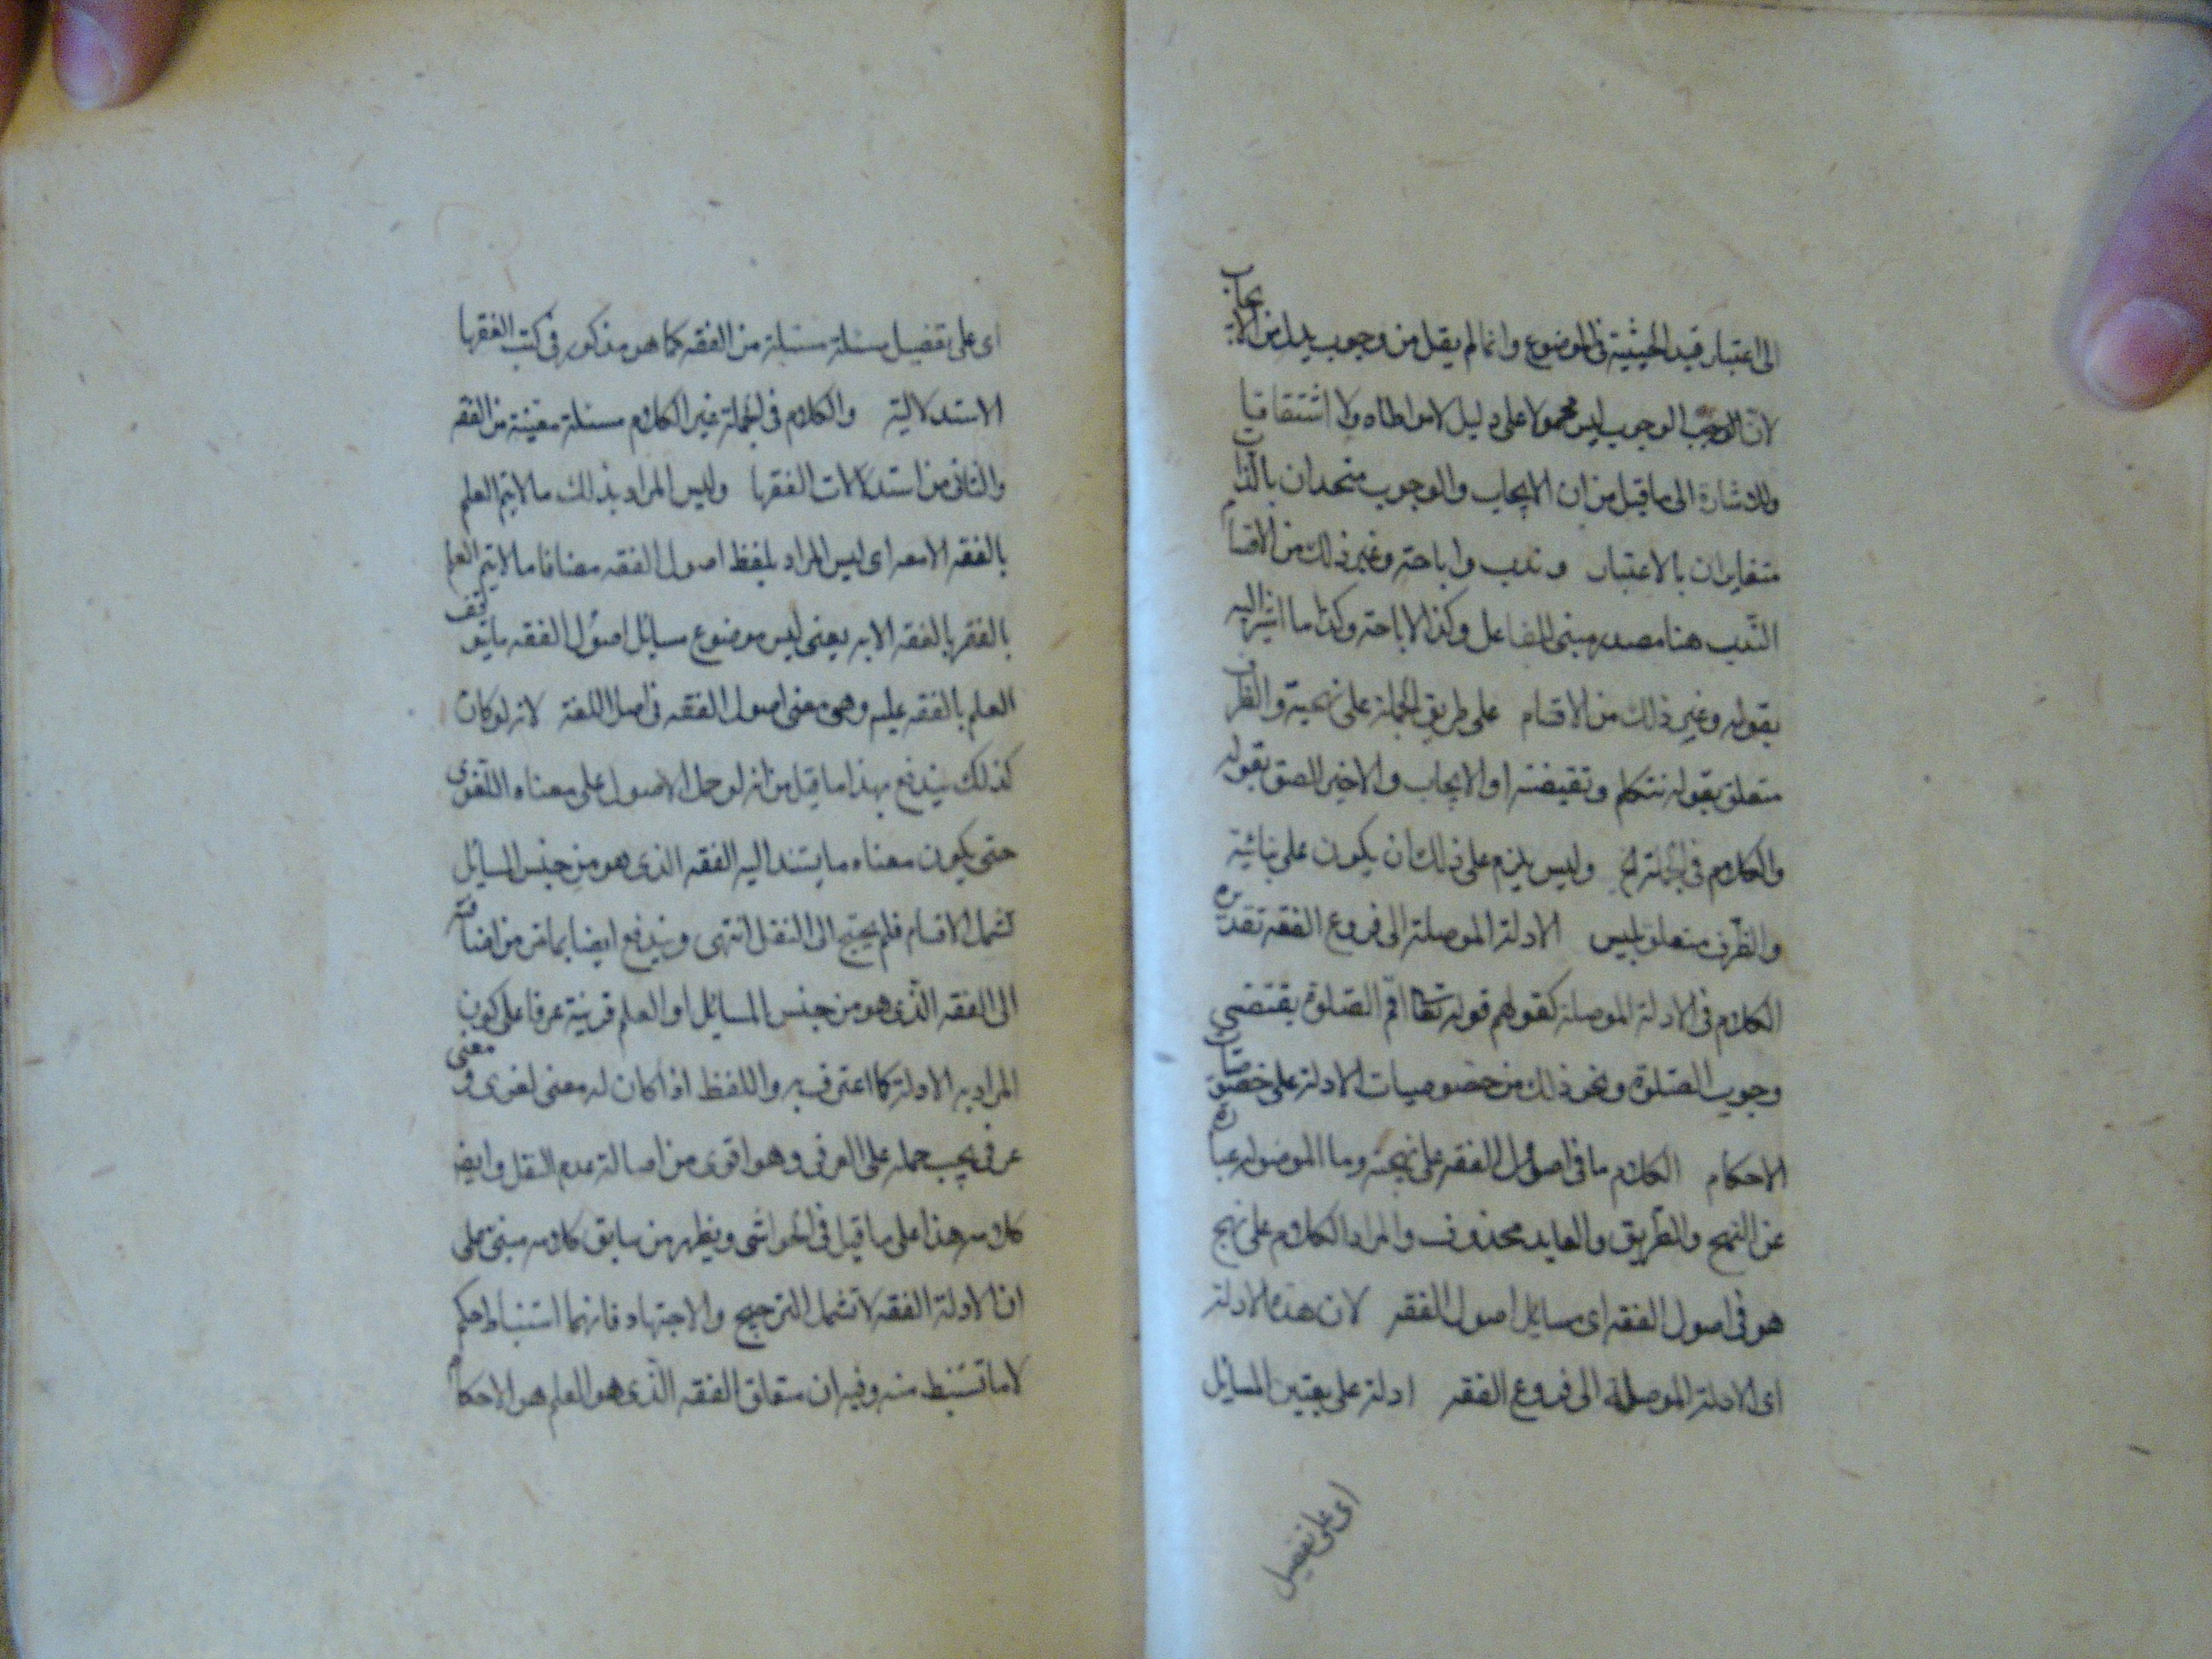 الى اعتبار قيد الحيثية فى الموضوع وانما لم يقل من وجوب بدل من الايجاب
لان الوجوب ليس محمولا على دليل لا مواطاه ولا اشتقاقيا
وللاشارة الى ما قيل من ان الايجاب والوجوب متحدان بالذات
متغايران بالاعتبار وندب واباحة وغير ذلك من الاقسام
الندب هنا مصدر مبنى للفاعل وكذا الاباحة وكذا ما اشير اليه
بقوله وغير ذلك من الاقسام على طريق الجملة على نهجية والظرف
متعلق بقوله نتكلم ونقيضنه او الايجاب والاخير الصق بقوله
والكلام فى الجملة الخ وليس يلزم على ذلك ان يكون على
والظرف متعلق بليس الادلة الموصلة الى فروع الفقه تقديره
الكلام فى الادلة الموصلة كقولهم قوله تعالى اقم الصلوة يقتضى
وجوب الصلوة ونحو ذلك من خصوصيات الادلة على خصوصيات
الاحكام الكلام ما فى اصول الفقه على نهجه وما الموصولة عبارة
عن النهج والطريق والعايد محذوف والمراد الكلام على نهج
هو فى اصول الفقه اى مسايل اصول الفقه لان هذه الادلة
اى الادلة الموصلة الى فروع الفقه ادلة على تعيين المسايل
اى على تفصيل
اى على تفصيل مسئلة مسئلة من الفقه كما هو مذكور فى كتب الفقها
الاستدلالية والكلام فى الجملة غير الكلام مسئلة معينة من الفقه
والثانى من استدلالات الفقها وليس المراد بذلك ما لا يتم العلم
بالفقه الا معه اى ليس المراد بلفظ اصول الفقه مضافا ما لا يتم العلم
بالفقه الا به يعنى ليس موضوع مسايل اصول الفقه ما يتوقف
العلم بالفقه عليه وهى معنى اصول الفقه فى اصل اللغة لانه لو كان
كذلك يندفع بهذا ما قيل من انه لو حمل الاصول على معناه اللغوى
حتى يكون معناه ما يستند اليه الفقه الذى هو من جنس المسايل
لشمل الاقسام فلم يحتج الى النقل انتهى ويندفع ايضا بما مر من اضافته
الى الفقه الذى هو من جنس المسايل او العلم قرينة عرفا على كون
المراد به الادلة كما اعترف به واللفظ اذا كان له معنى لغوى ومعنى
عرفى يجب حمله على العرفى وهو اقوى من اصالة عدم النقل وايضا
كلامه هذا على ما قيل فى الحواشى ويظهر من سابق كلامه مبنى على
ان الادلة الفقه لا تشمل الترجيح والاجتهاد فانهما استنباط حكم
لا ما تستنبط منه وفيه ان متعلق الفقه الذى هو العلم هو الاحكام